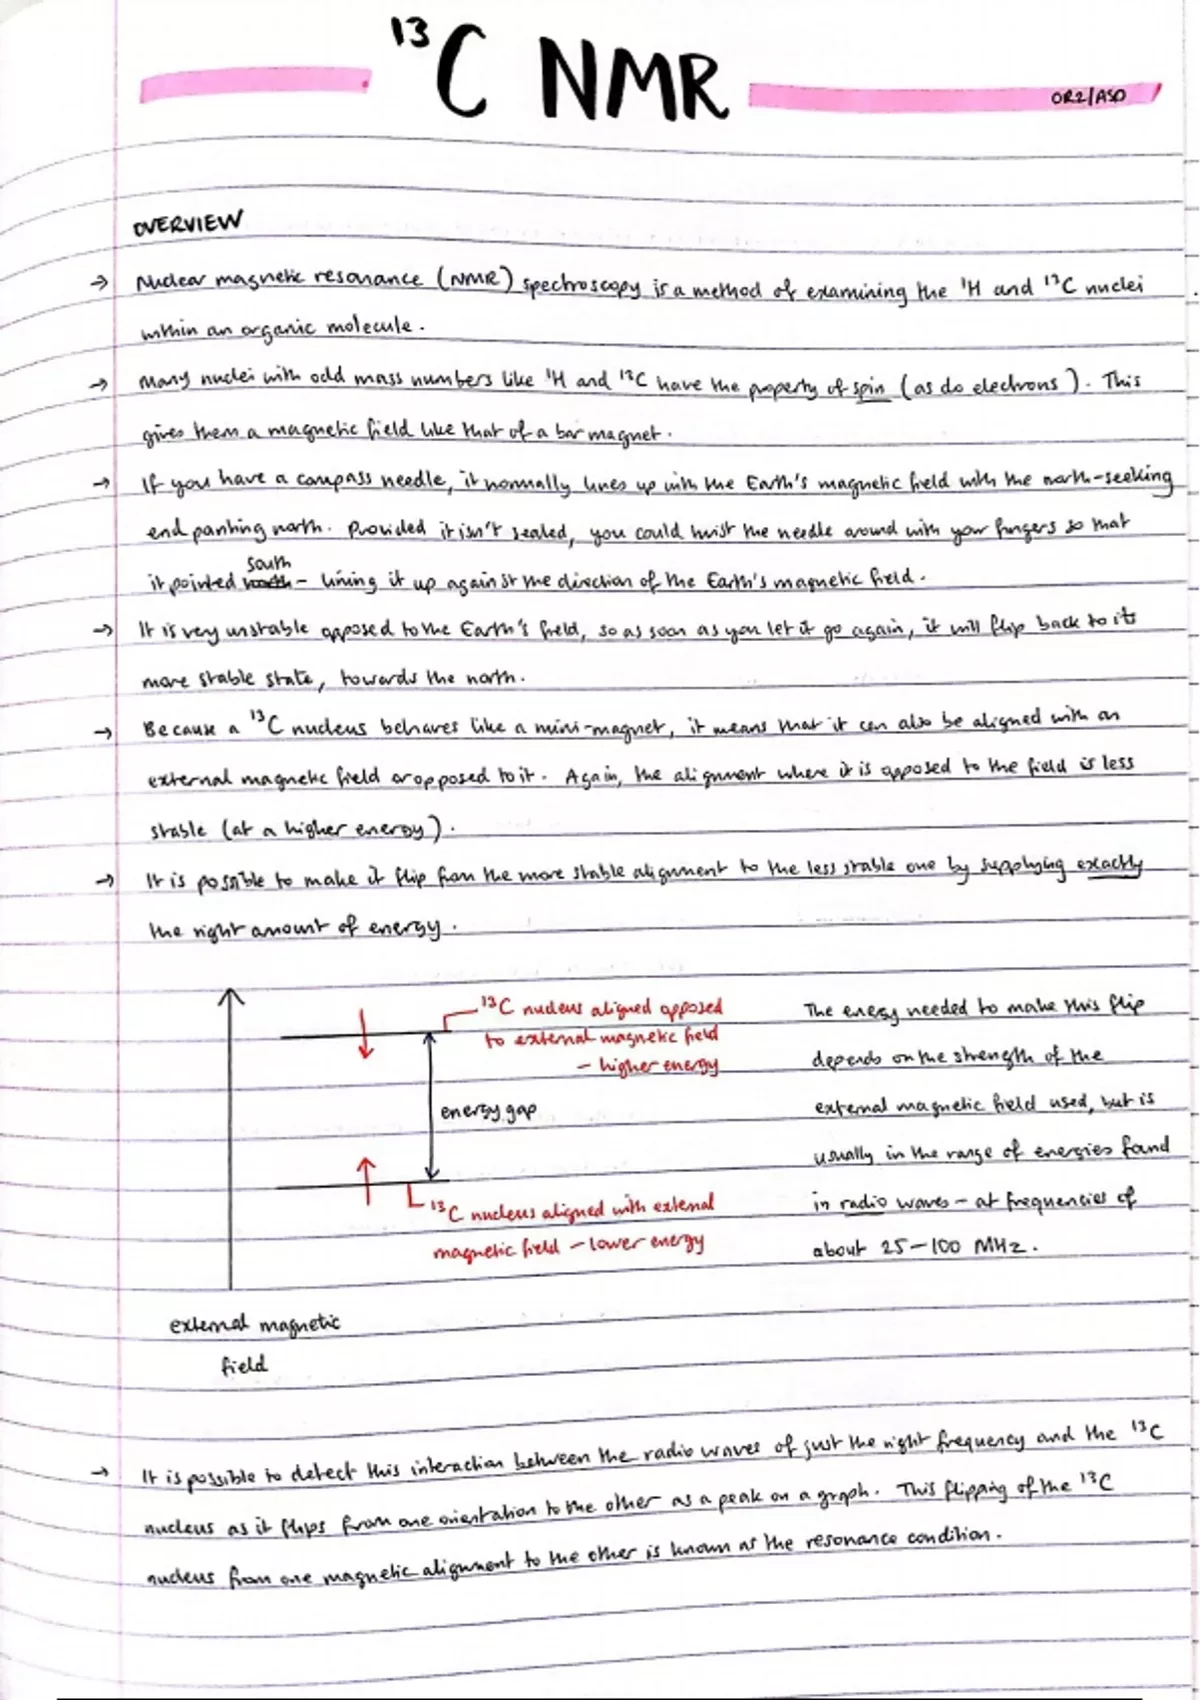 ¹³C NMR
OR2/ASD
OVERVIEW
→ Nuclear magnetic resonance (NMR) spectroscopy is a method of examining the ¹H and ¹³C nuclei
within an organic molecule.
→ Many nuclei with odd mass numbers like ¹H and ¹³C have the property of spin (as do electrons). This
gives them a magnetic field like that of a bar magnet.
→ If you have a compass needle, it normally lines up with the Earth's magnetic field with the north-seeking
end pointing north. Provided it isn't sealed, you could twist the needle around with your fingers so that
it pointed south - lining it up against the direction of the Earth's magnetic field.
→ It is very unstable opposed to the Earth's field, so as soon as you let it go again, it will flip back to its
more stable state, towards the north.
→ Because a ¹³C nucleus behaves like a mini-magnet, it means that it can also be aligned with an
external magnetic field or opposed to it. Again, the alignment where it is opposed to the field is less
stable (at a higher energy).
→ It is possible to make it flip from the more stable alignment to the less stable one by supplying exactly
the right amount of energy.
¹³C nucleus aligned opposed
to external magnetic field
- higher energy
energy gap
¹³C nucleus aligned with external
magnetic field - lower energy
external magnetic
field
The energy needed to make this flip
depends on the strength of the
external magnetic field used, but is
usually in the range of energies found
in radio waves - at frequencies of
about 25-100 MHz.
→ It is possible to detect this interaction between the radio waves of just the right frequency and the ¹³C
nucleus as it flips from one orientation to the other as a peak on a graph. This flipping of the ¹³C
nucleus from one magnetic alignment to the other is known as the resonance condition.